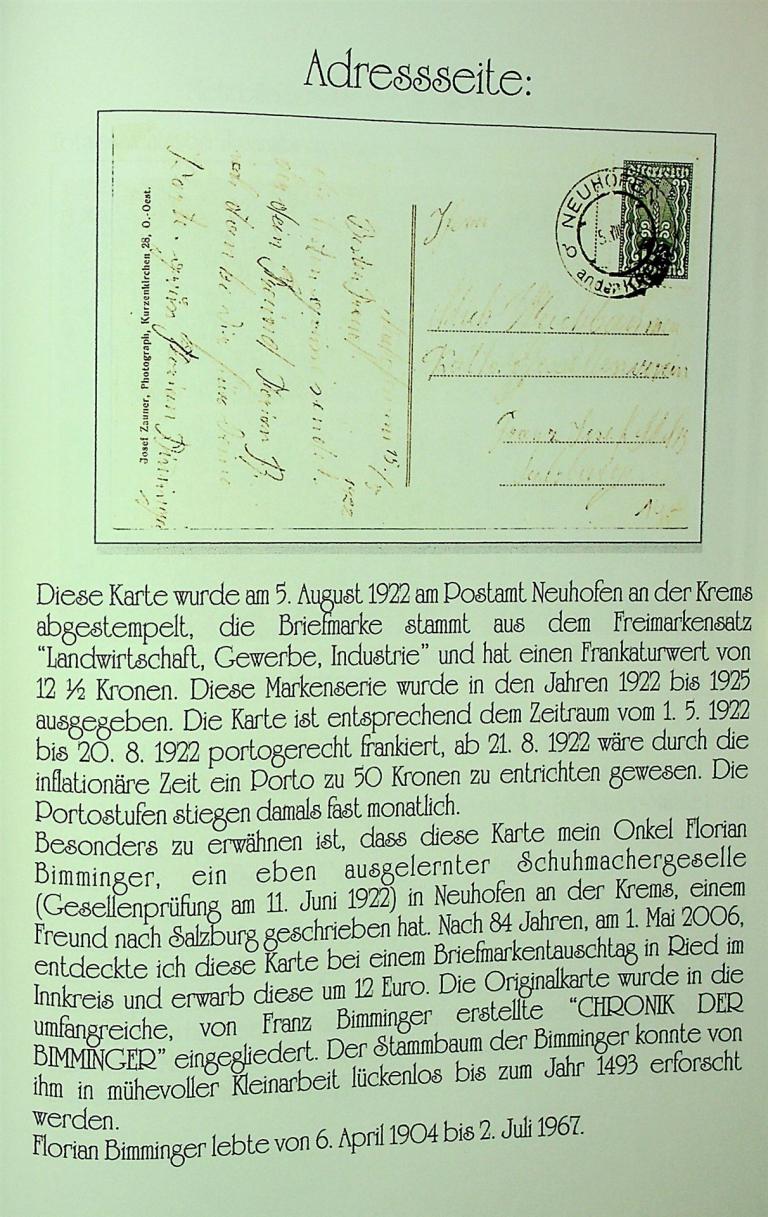 Adressseite:
Josef Zauner, Photograph, Kurzenkirchen 28, O.-Oest.
NEUHOFEN
Diese Karte wurde am 5. August 1922 am Postamt Neuhofen an der Krems
abgestempelt, die Briefmarke stammt aus dem Freimarkensatz
"Landwirtschaft, Gewerbe, Industrie" und hat einen Frankaturwert von
12 ½ Kronen. Diese Markenserie wurde in den Jahren 1922 bis 1925
ausgegeben. Die Karte ist entsprechend dem Zeitraum vom 1. 5. 1922
bis 20. 8. 1922 portogerecht frankiert, ab 21. 8. 1922 wäre durch die
inflationäre Zeit ein Porto zu 50 Kronen zu entrichten gewesen. Die
Portostufen stiegen damals fast monatlich.
Besonders zu erwähnen ist, dass diese Karte mein Onkel Florian
Bimminger, ein eben ausgelernter Schuhmachergeselle
(Gesellenprüfung am 11. Juni 1922) in Neuhofen an der Krems, einem
Freund nach Salzburg geschrieben hat. Nach 84 Jahren, am 1. Mai 2006,
entdeckte ich diese Karte bei einem Briefmarkentauschtag in Ried im
Innkreis und erwarb diese um 12 Euro. Die Originalkarte wurde in die
umfangreiche, von Franz Bimminger erstellte "CHRONIK DER
BIMMINGER" eingegliedert. Der Stammbaum der Bimminger konnte von
ihm in mühevoller Kleinarbeit lückenlos bis zum Jahr 1493 erforscht
werden.
Florian Bimminger lebte von 6. April 1904 bis 2. Juli 1967.